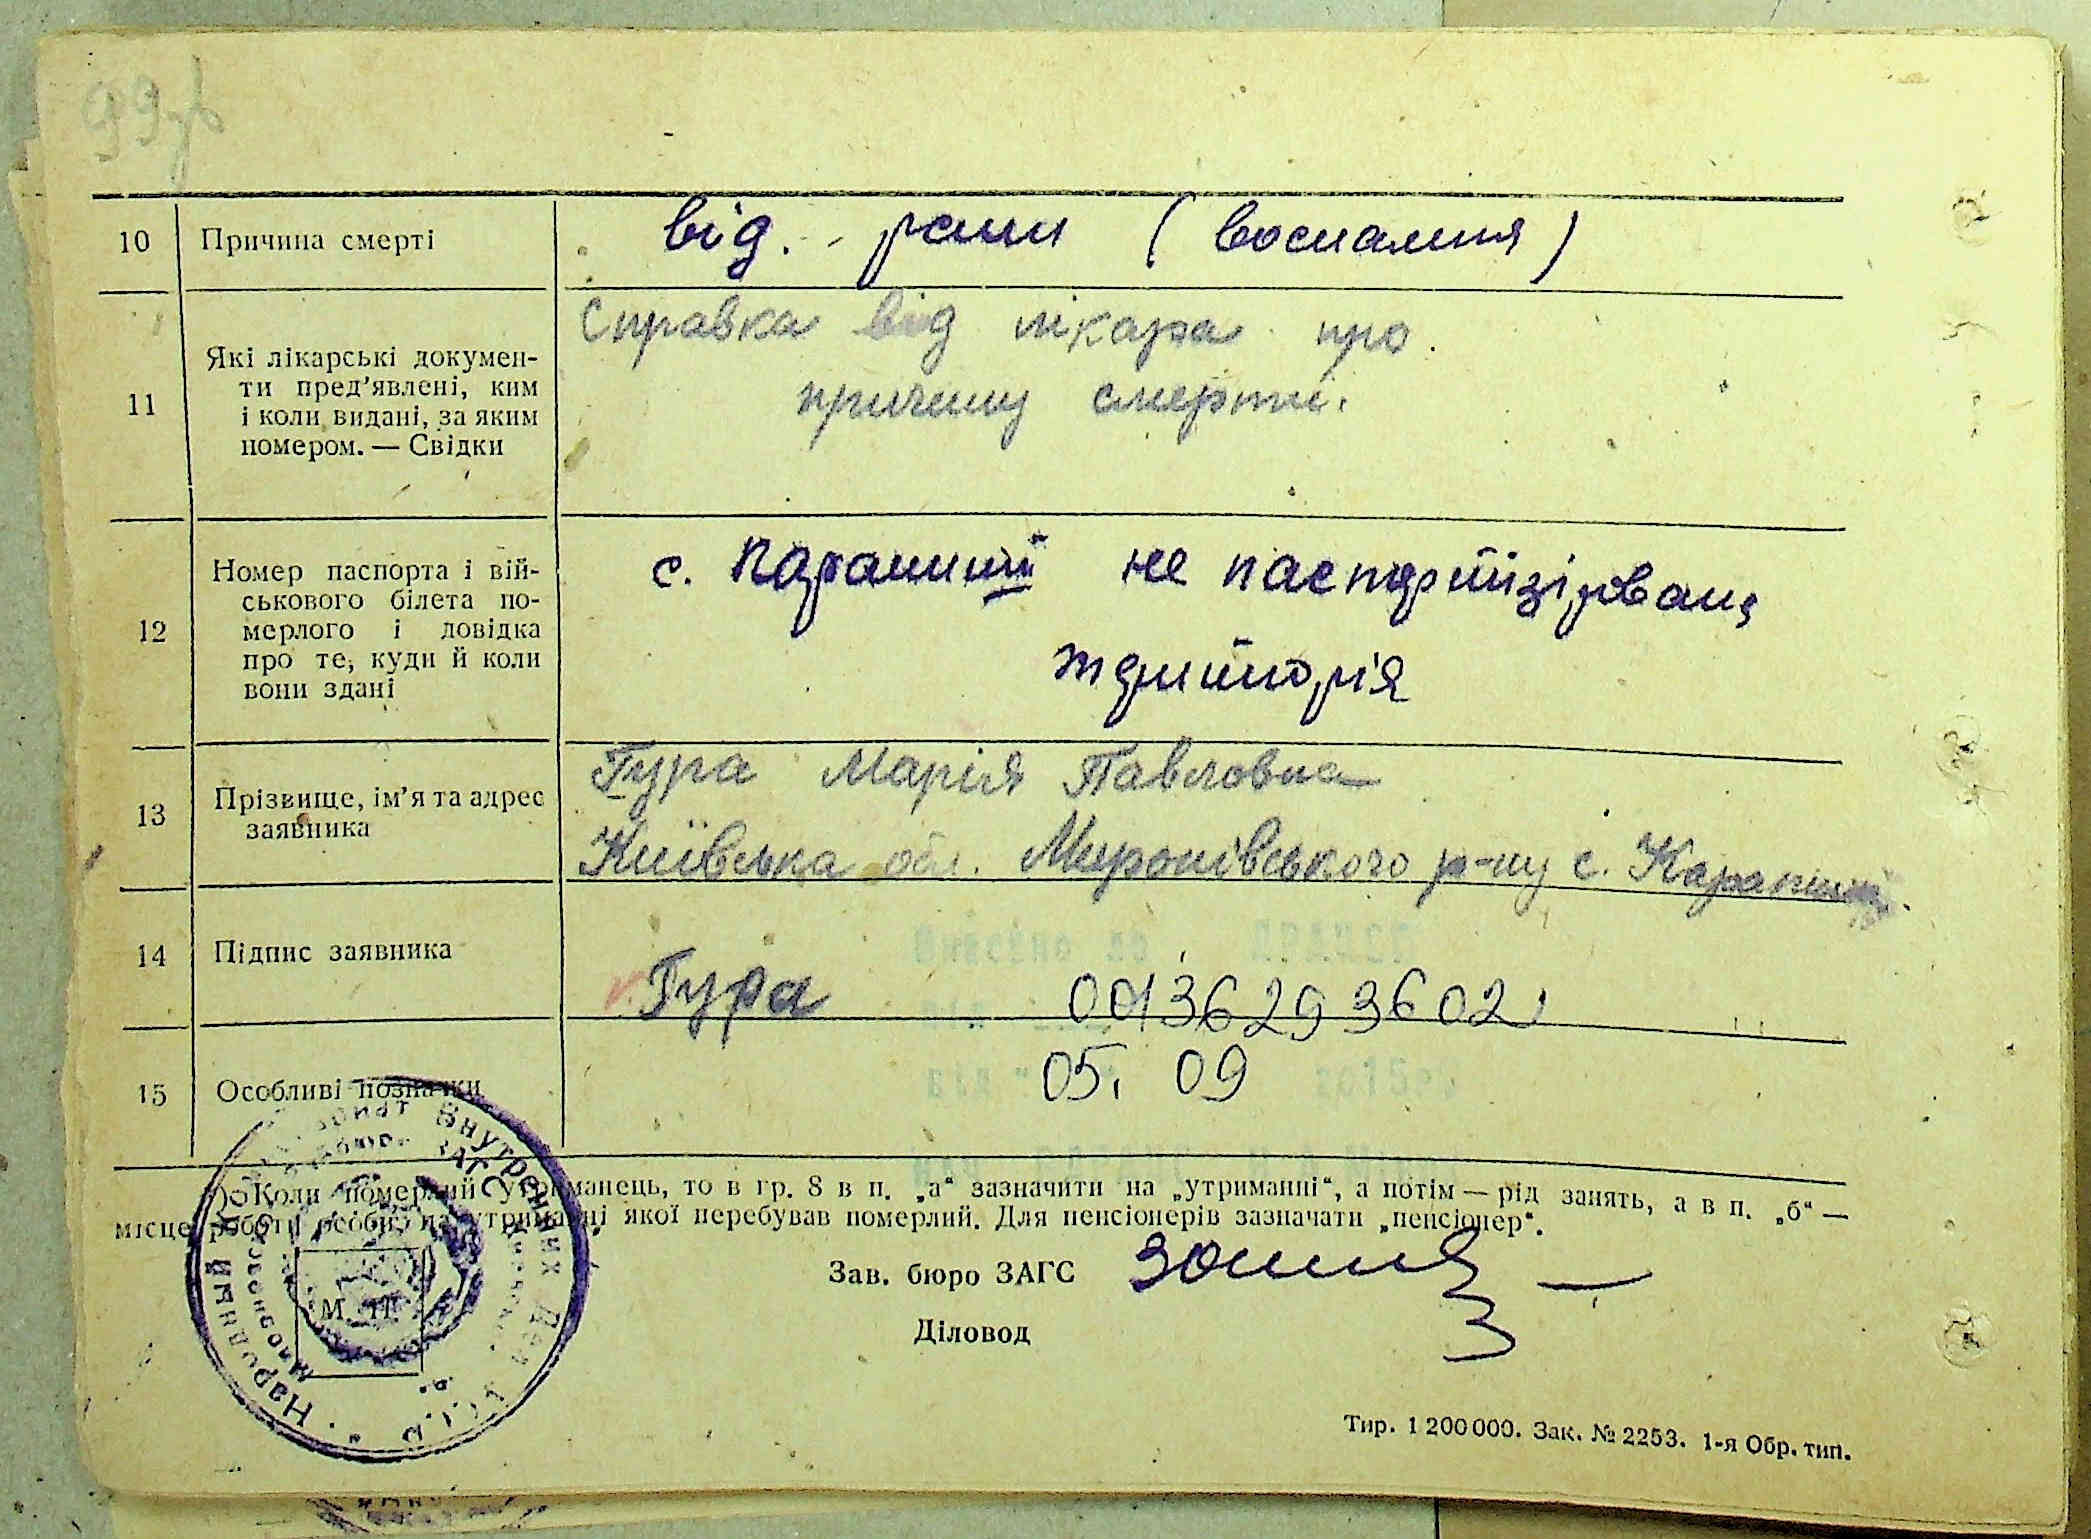 99зв
10 Причина смерті від. рани (воспалння)
11 Які лікарські докумен-
ти пред'явлені, ким
і коли видані, за яким
номером. — Свідки
Справка від лікара про
причину смерти.
12 Номер паспорта і вій-
ськового білета по-
мерлого і довідка
про те, куди й коли
вони здані
с. Карапиші не паспортізірована
територія
13 Прізвище, ім'я та адрес
заявника
Гура Марія Павловна
Київська обл. Миронівського р-ну с. Карапиші.
14 Підпис заявника Гура 00136293602
Внесено до ДРАЦСГ
15 Особливі позначки 05. 09
від 2015р.
Коли померлий утриманець, то в гр. 8 в п. „а“ зазначити на „утриманні“, а потім — рід занять, а в п. „б“ —
місце роботи особи, на утриманні якої перебував померлий. Для пенсіонерів зазначати „пенсіонер“.
Зав. бюро ЗАГС
Діловод
М. П.
Народный Внутренних Дел
бюро ЗАГС
Тир. 1 200 000. Зак. № 2253. 1-я Обр. тип.